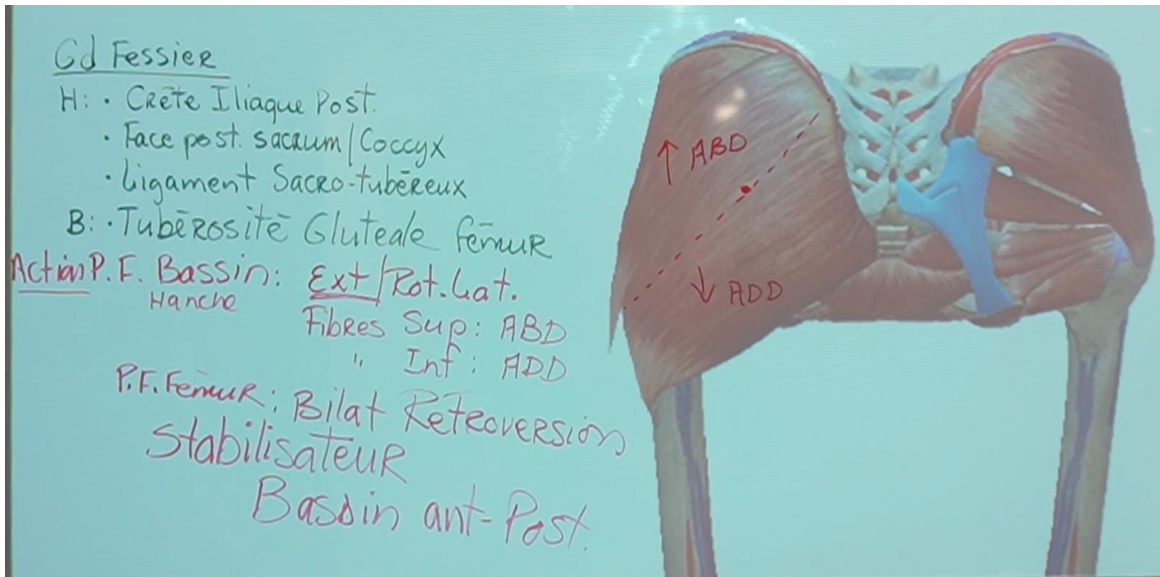 Gd Fessier
H: • Crête Iliaque Post.
• Face post. sacrum/Coccyx
• Ligament Sacro-tubéreux
B: • Tubérosité Gluteale fémur
Action P.F. Bassin: Ext/Rot. Lat.
Hanche
Fibres Sup: ABD
" Inf: ADD
P.F. Fémur: Bilat Rétroversion
Stabilisateur
Bassin ant-Post.
↑ ABD
↓ ADD